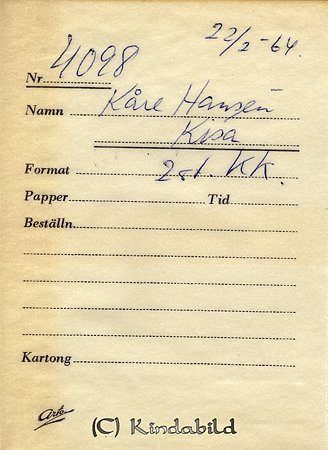 22/2-64.
Nr 4098
Namn Kåre Hansen
Kisa
Format 2 st. KK.
Papper Tid
Beställn.
Kartong
Ark
(C) Kindabild